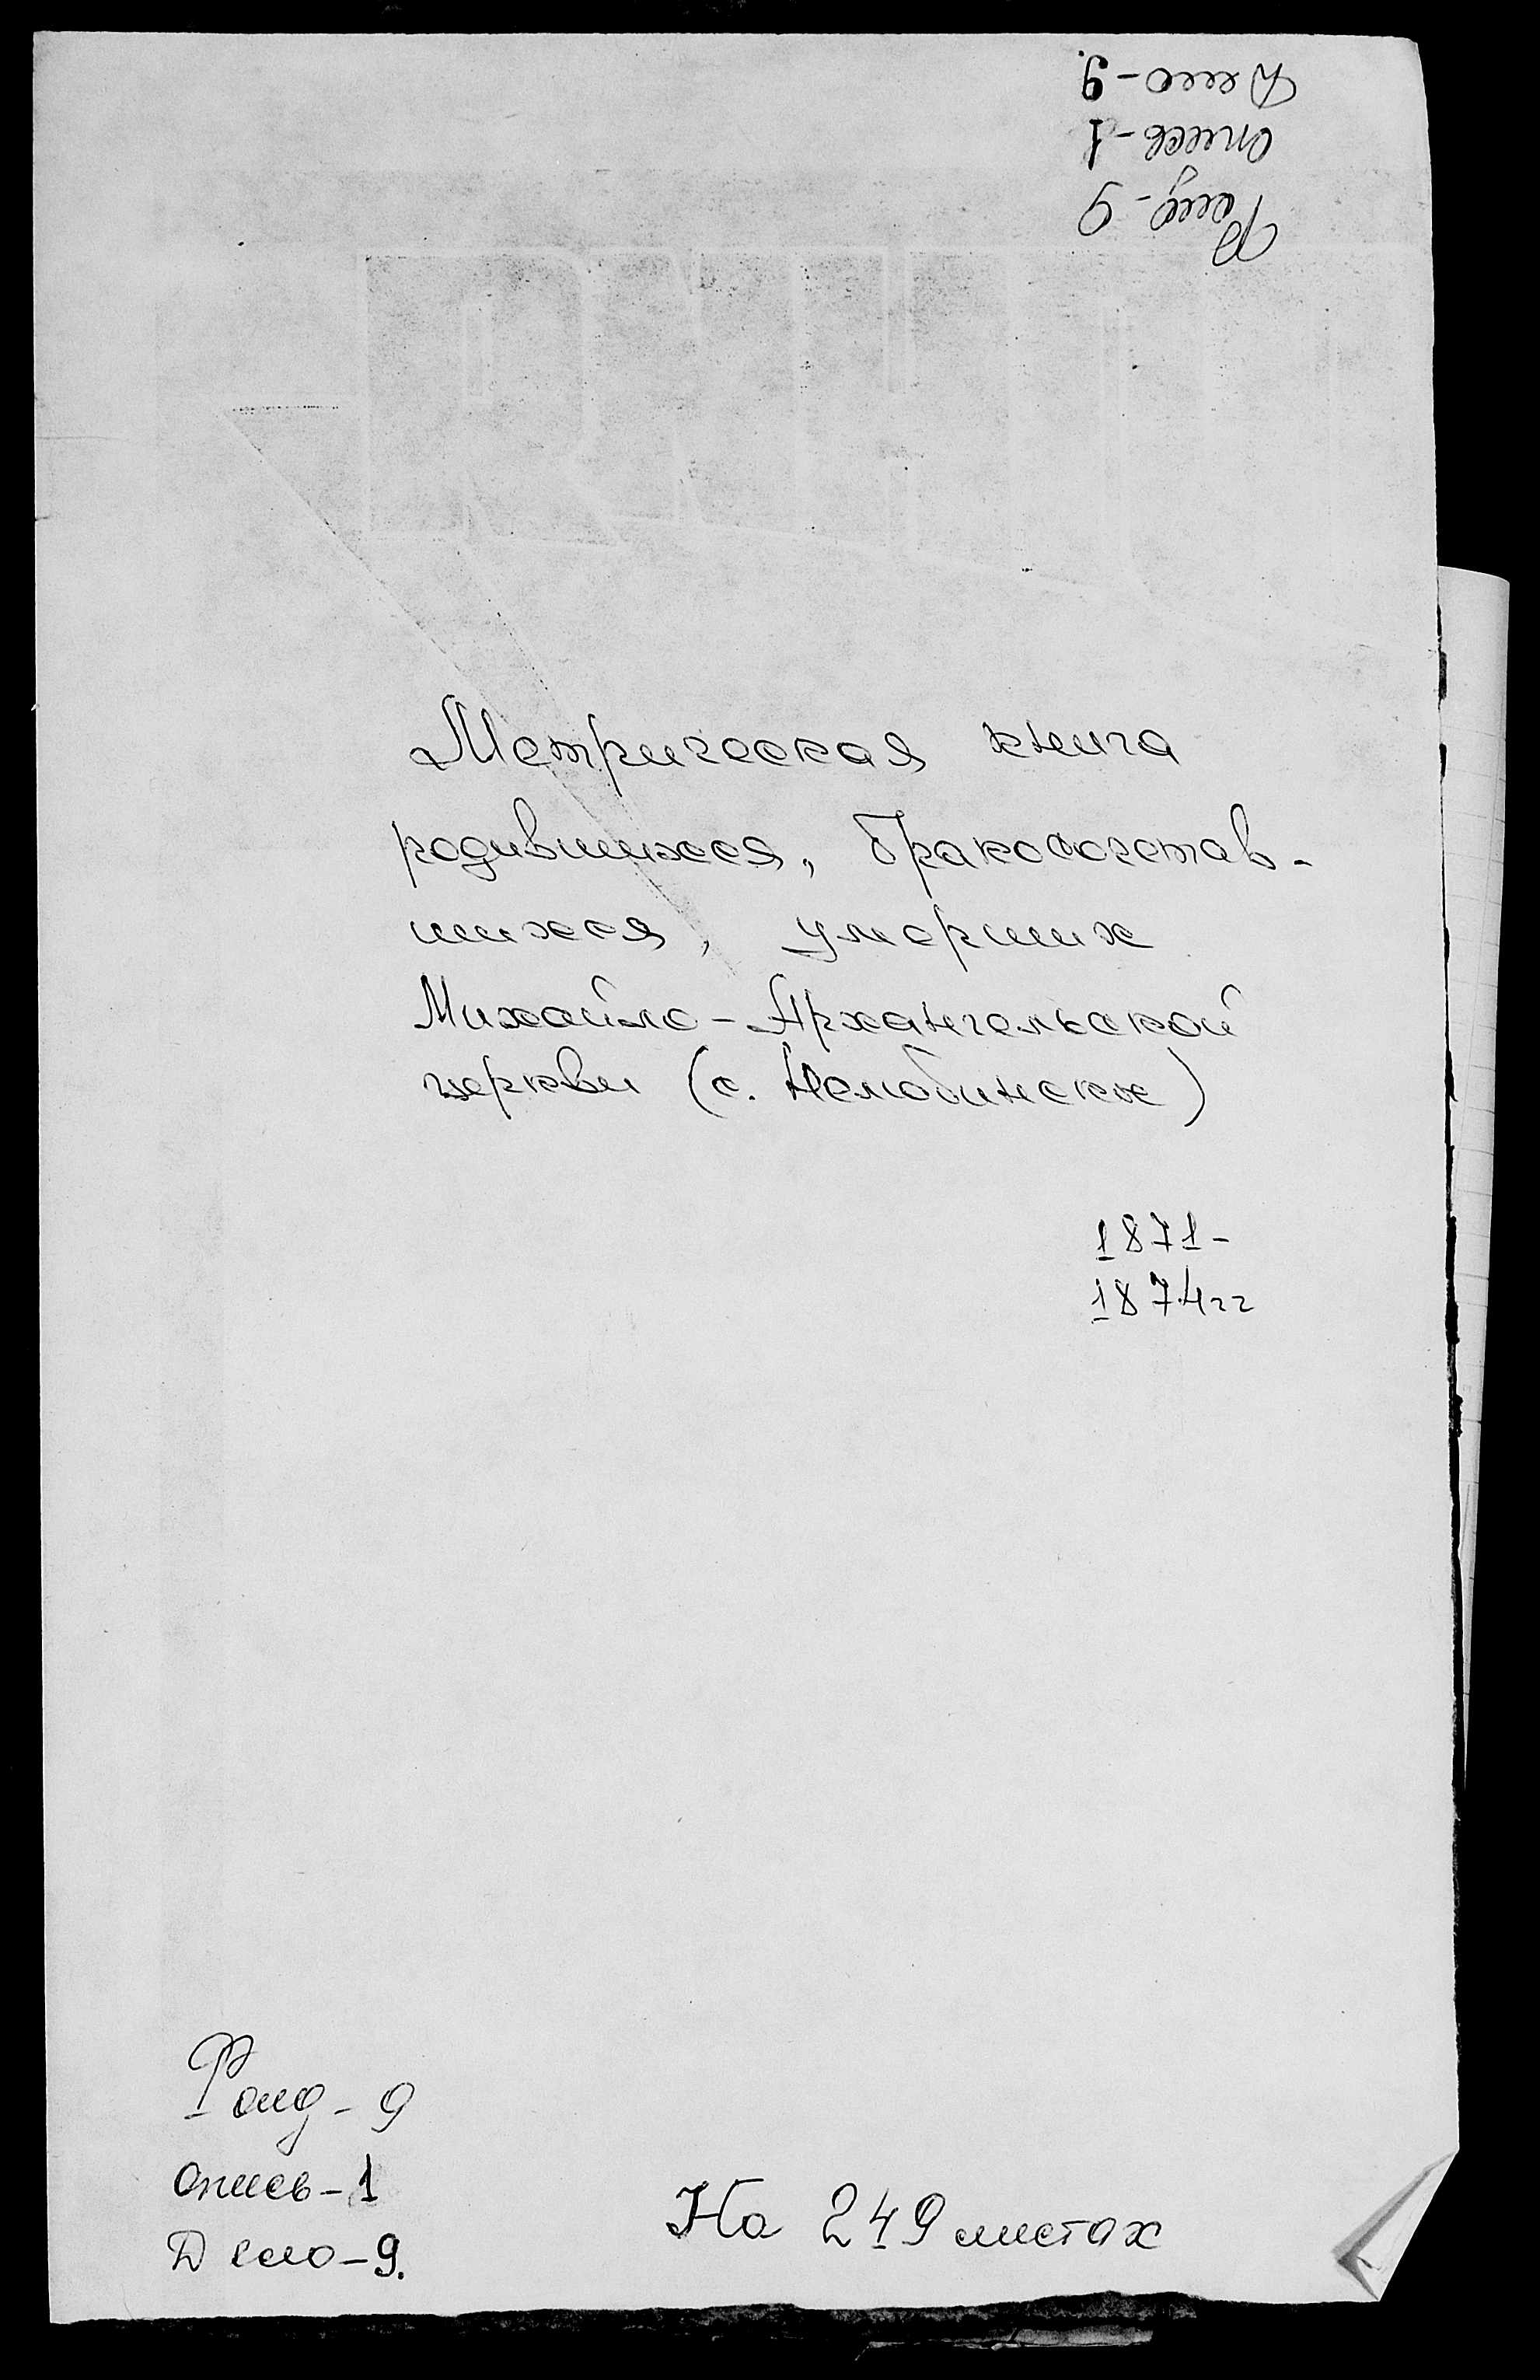 Дело-9.
опись-1
Фонд-9
Метрическая книга
родившихся, бракосочетав-
шихся, умерших
Михайло-Архангельской
церкви (с. Нелюбинское)
1871-
1874гг
Фонд-9
опись-1
Дело-9.
На 249 листах